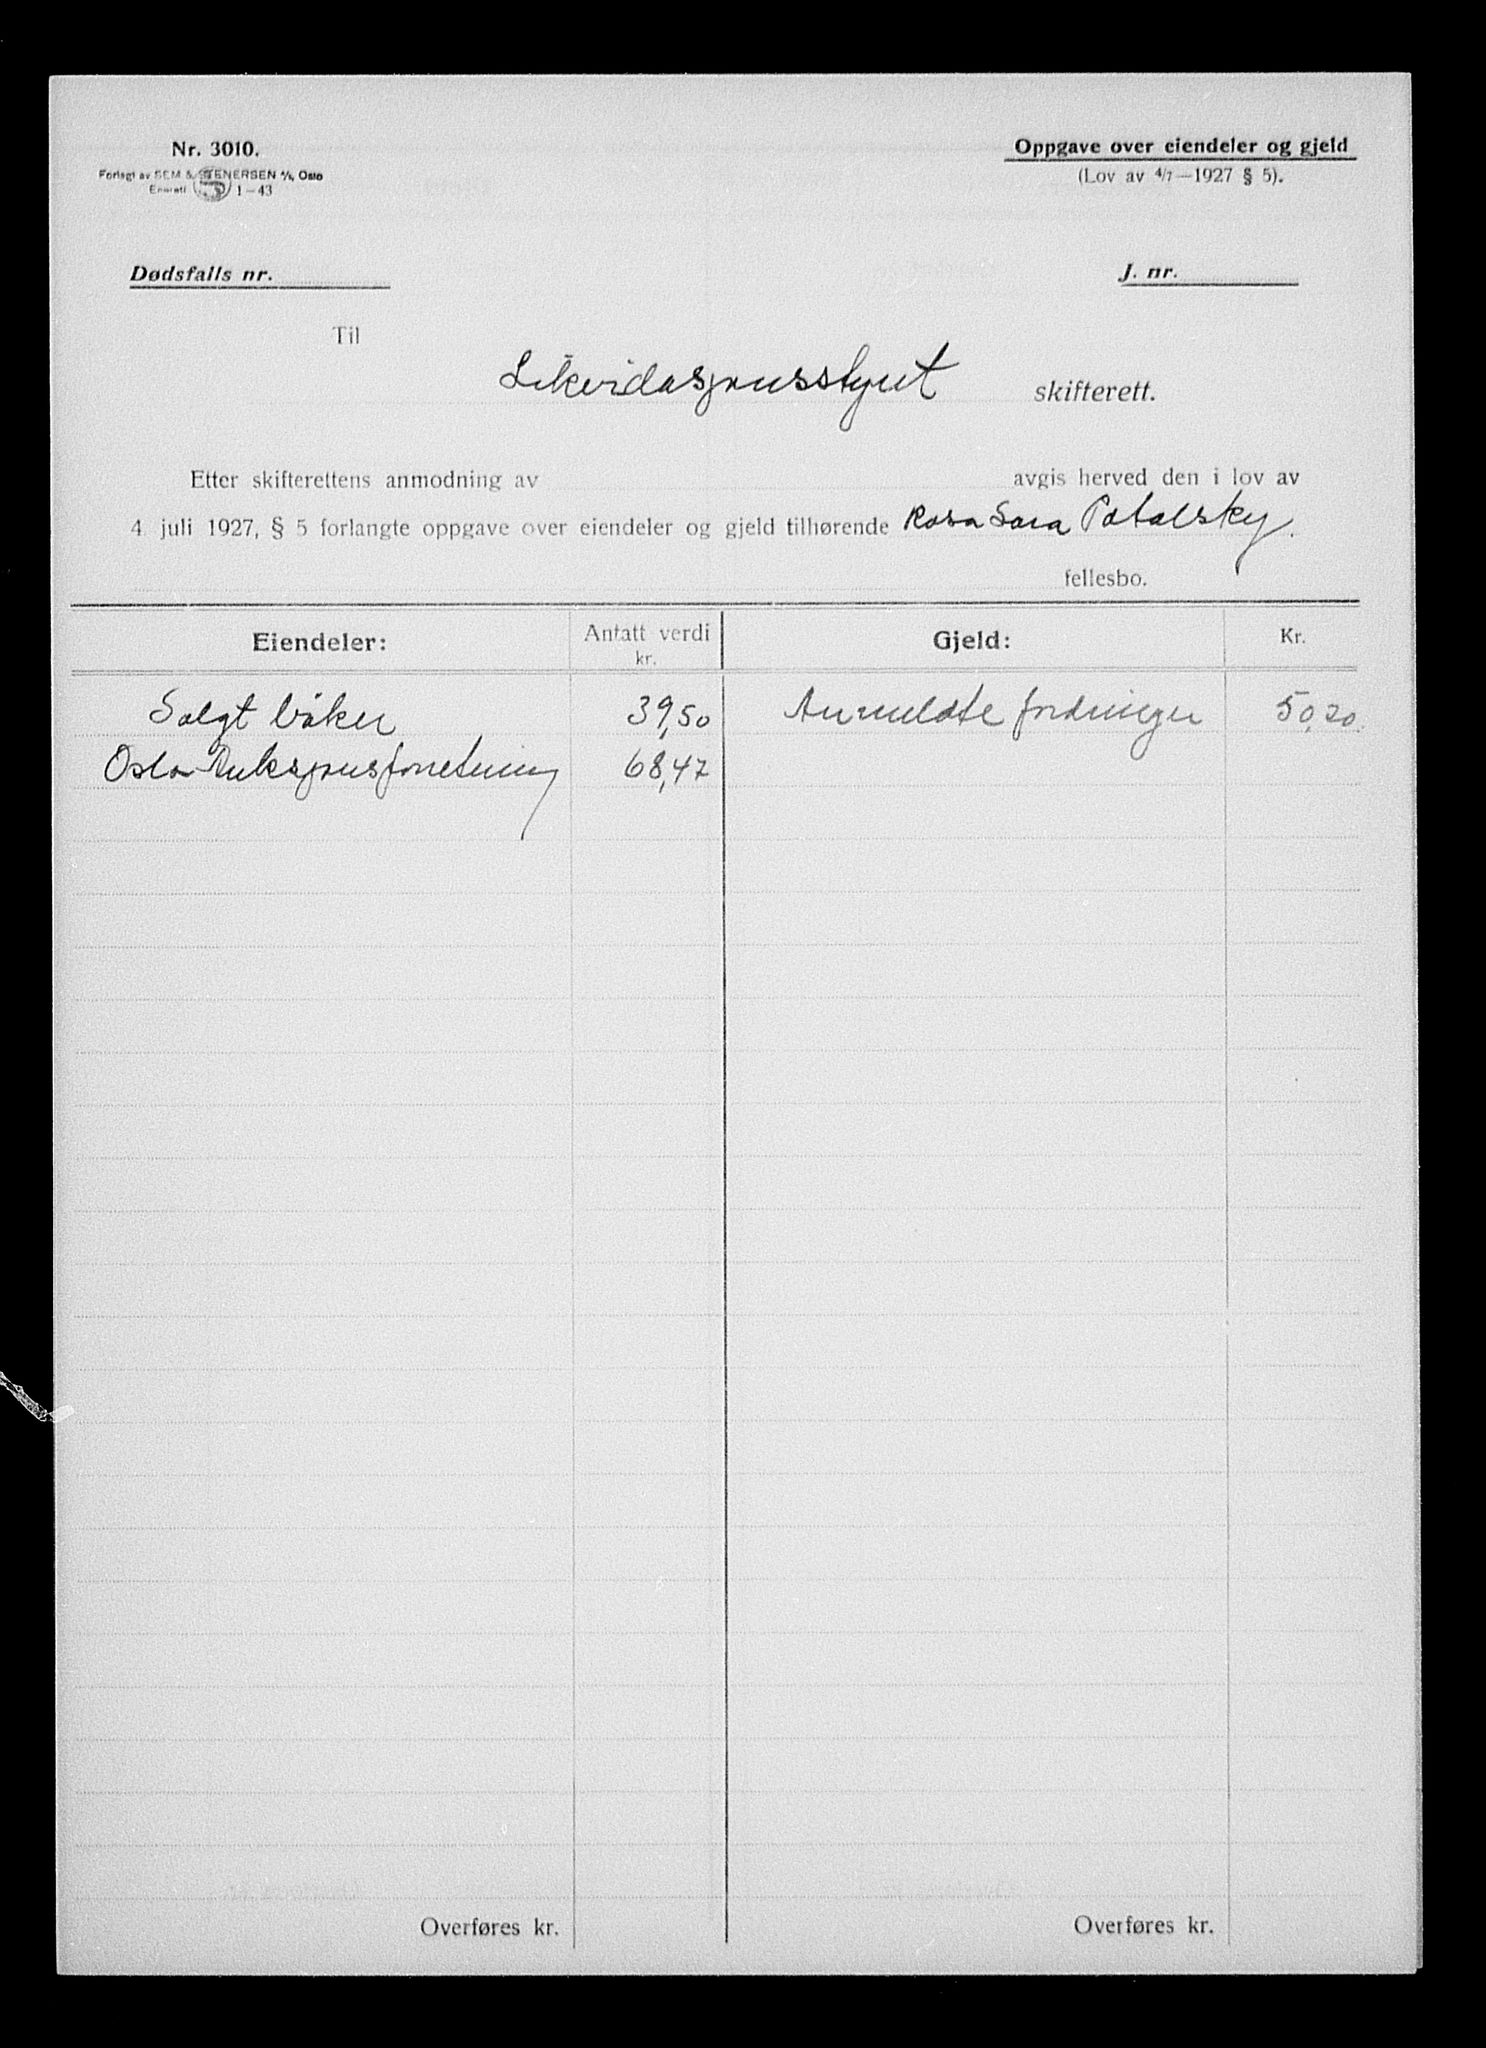 Nr. 3010.
Forlagt av SEM & STENERSEN A/s, Oslo
Enerett 1—43
Oppgave over eiendeler og gjeld
(Lov av 4/7—1927 § 5).
Dødsfalls nr.
J. nr.
Til
Likvidasjonsstyret skifterett.
Etter skifterettens anmodning av avgis herved den i lov av
4. juli 1927, § 5 forlangte oppgave over eiendeler og gjeld tilhørende Rosa Sara Potolsky.
fellesbo.
Eiendeler: Antatt verdi kr. Gjeld: Kr.
Solgt bøker 39,50 Anmeldte fordringer 50,20
Oslo Auksjonsforretning 68,47
Overføres kr. Overføres kr.